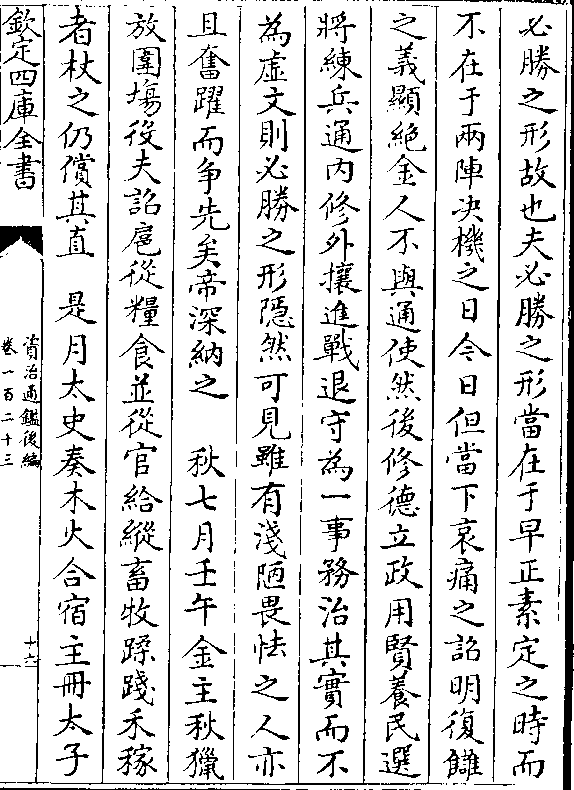 必勝之形故也夫必勝之形當在于早正素定之時而
不在于兩陣決機之日今日但當下哀痛之詔明復讎
之義顯絶金人不與通使然後修德立政用賢養民選
將練兵通内修外攘進戰退守為一事務治其實而不
為虛文則必勝之形隱然可見雖有淺陋畏怯之人亦
且奮躍而争先矣帝深納之　秋七月壬午金主秋獵
放圍塲役夫詔扈從糧食並從官給縱畜牧蹂踐禾稼
者杖之仍償其直　是月太史奏木火合宿主冊太子
欽定四庫全書
資治通鑑後編
卷一百二十三
十六